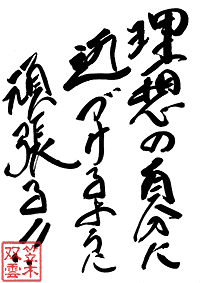 理想の自分に
近づけるように
頑張る!!
笠木
双雲